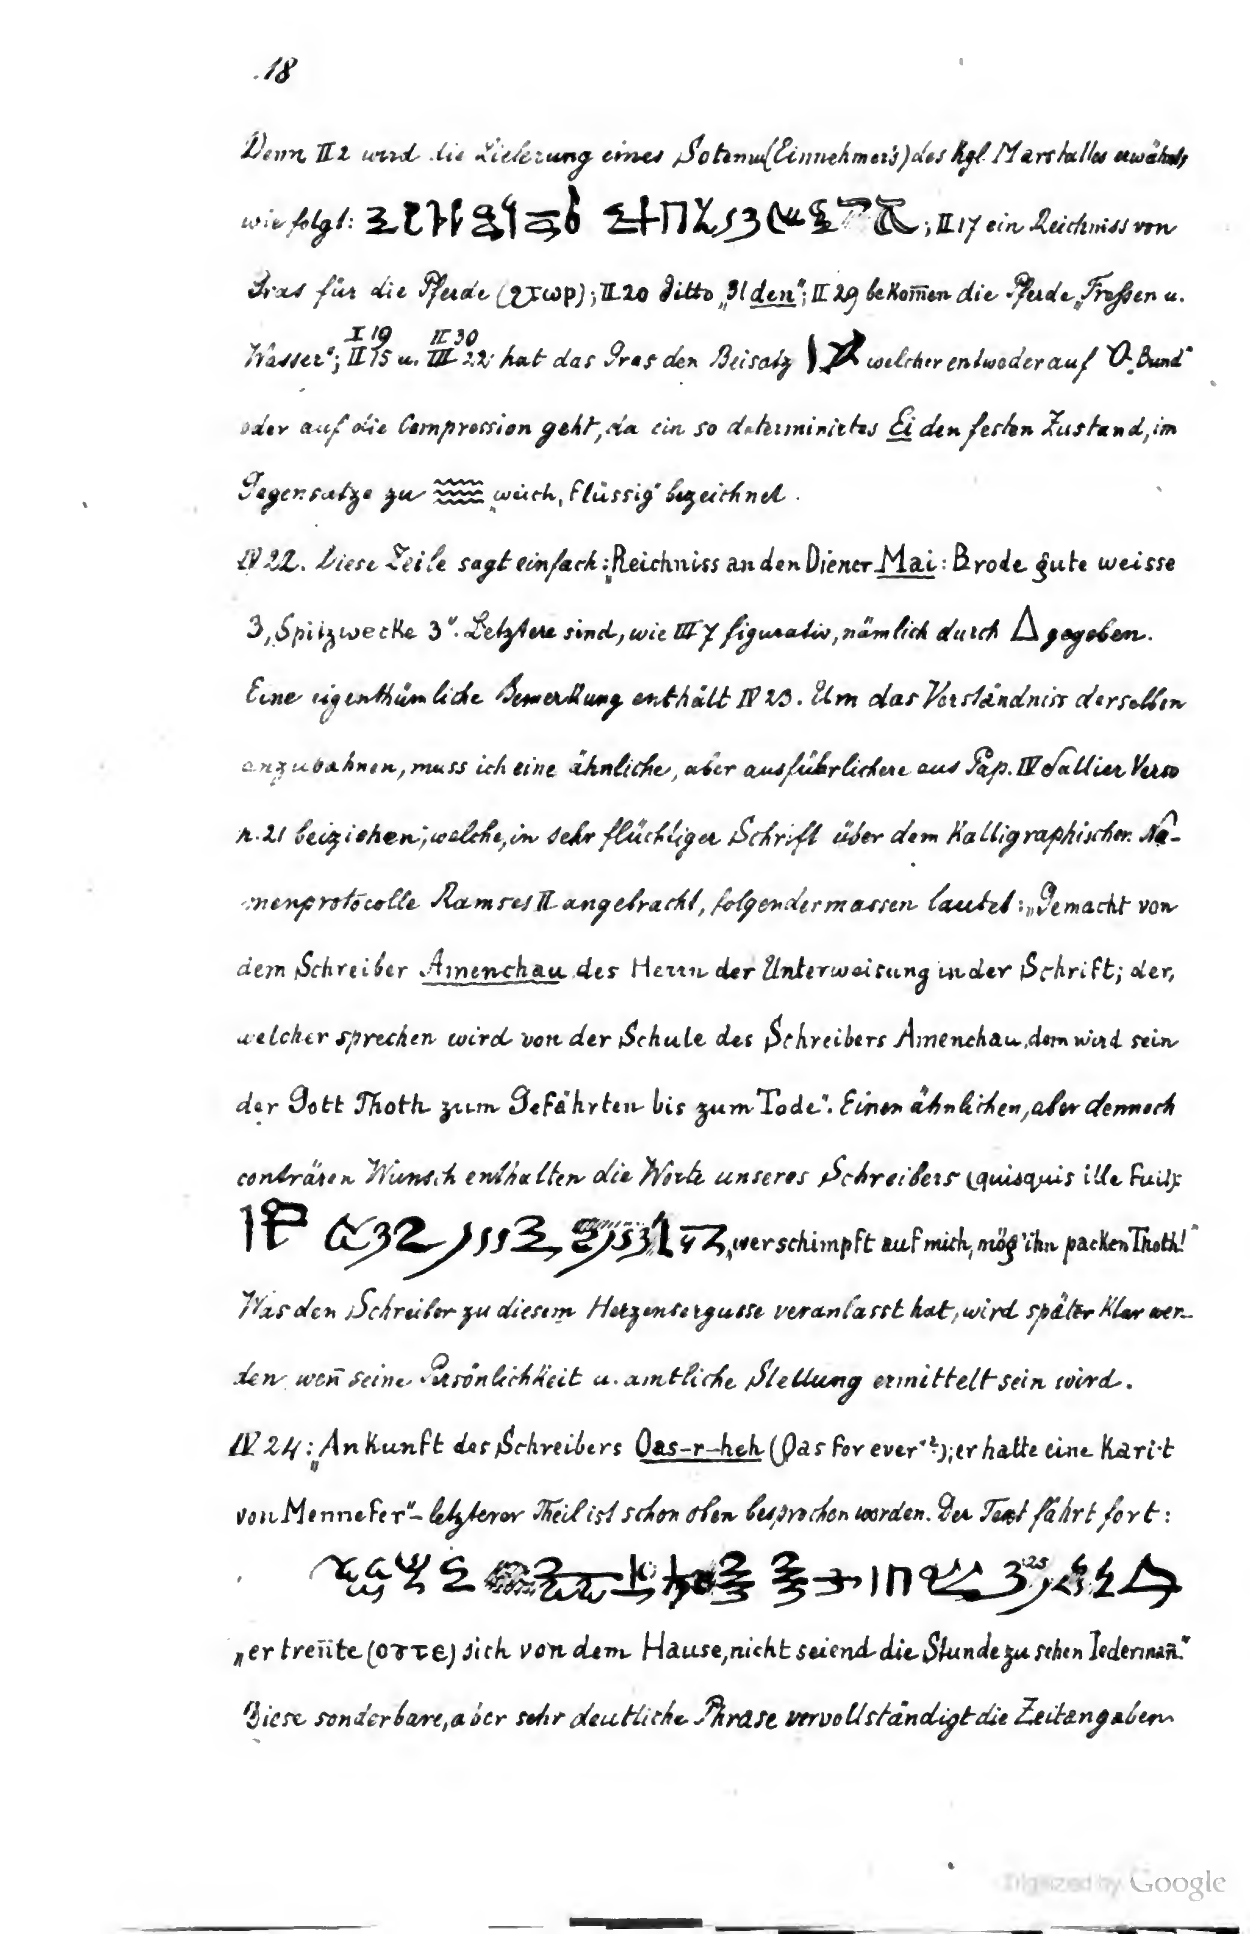 18
Denn II 2 wird die Lieferung eines Sotenu (Einnehmer's) des Kgl. Marstalles erwähnt,
wie folgt: ; II 17 ein Reichniss von
Gras für die Pferde (ϩτωρ); II 20 ditto „31 den"; II 29 bekom̄en die Pferde „Fressen u.
I 19 II 30
Wasser"; II 15 u. III 22 hat das Gras den Beisatz welcher entweder auf Bund"
oder auf die Compression geht, da ein so determinirtes Ei den festen Zustand, im
Gegensatze zu „weich, flüssig" bezeichnet.
IV 22. Diese Zeile sagt einfach: „Reichniss an den Diener Mai: Brode gute weisse
3, Spitzwecke 3". Letztere sind, wie III 7 figurativ, nämlich durch △ gegeben.
Eine eigenthümliche Bemerkung enthält IV 23. Um das Verständniss derselben
anzubahnen, muss ich eine ähnliche, aber ausführlichere aus Pap. IV Sallier Verso
n. 21 beiziehen, welche, in sehr flüchtiger Schrift über dem kalligraphischen Na-
menprotocolle Ramses II angebracht, folgendermassen lautet: „Gemacht von
dem Schreiber Amenchau des Herrn der Unterweisung in der Schrift; der,
welcher sprechen wird von der Schule des Schreibers Amenchau, dem wird sein
der Gott Thoth zum Gefährten bis zum Tode". Einen ähnlichen, aber dennoch
conträren Wunsch enthalten die Worte unseres Schreibers (quisquis ille fuit):
„wer schimpft auf mich, mög' ihn packen Thoth!"
Was den Schreiber zu diesem Herzensergusse veranlasst hat, wird später klar wer-
den, wen̄ seine Persönlichkeit u. amtliche Stellung ermittelt sein wird.
IV 24: „Ankunft des Schreibers Qas-r-heh (Qas for ever"); er hatte eine Kari·t
von Mennefer" – letzterer Theil ist schon oben besprochen worden. Der Text fährt fort:
25
„er tren̄te (ⲟⲩⲧⲉ) sich von dem Hause, nicht seiend die Stunde zu sehen Jederman̄."
Diese sonderbare, aber sehr deutliche Phrase vervollständigt die Zeitangaben
Digitized by Google